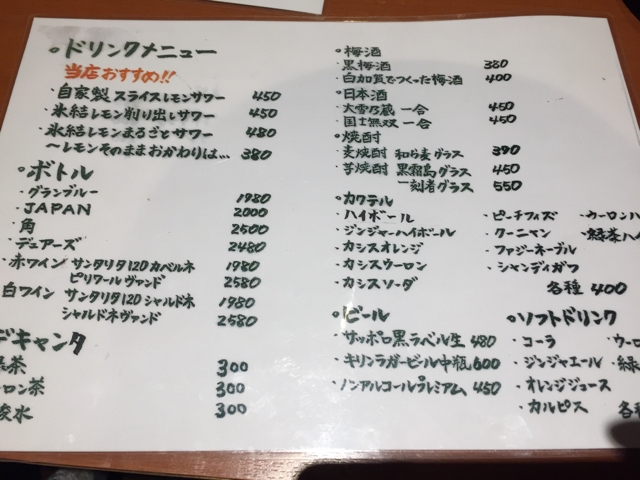 ドリンクメニュー
当店おすすめ!!
・自家製 スライスレモンサワー 450
・氷結レモン削り出しサワー 450
・氷結レモンまるごとサワー 480
〜レモンそのままおかわりは… 380
ボトル
・グランブルー 1980
・JAPAN 2000
・角 2500
・デュアーズ 2480
・赤ワイン サンタリタ120 カベルネ 1980
ピリワールヴァンド 2580
白ワイン サンタリタ120 シャルドネ 1980
シャルドネヴァンド 2580
デキャンタ
茶 300
ーロン茶 300
水 300
梅酒
・黒梅酒 380
・白加賀でつくった梅酒 400
日本酒
・大雪乃蔵 一合 450
・国士無双 一合 450
焼酎
・麦焼酎 和ら麦グラス 390
・芋焼酎 黒霧島グラス 450
一刻者グラス 550
カクテル
・ハイボール
・ジンジャーハイボール
・カシスオレンジ
・カシスウーロン
・カシスソーダ
・ピーチフィズ
・クーニャン
・ファジーネーブル
・シャンディガフ
・ウーロンハ
・緑茶ハイ
各種 400
ビール
・サッポロ黒ラベル生 480
・キリンラガービール中瓶 600
・ノンアルコールプレミアム 450
ソフトドリンク
・コーラ
・ジンジャエール
・オレンジジュース
・カルピス
・ウーロ
・緑
各種